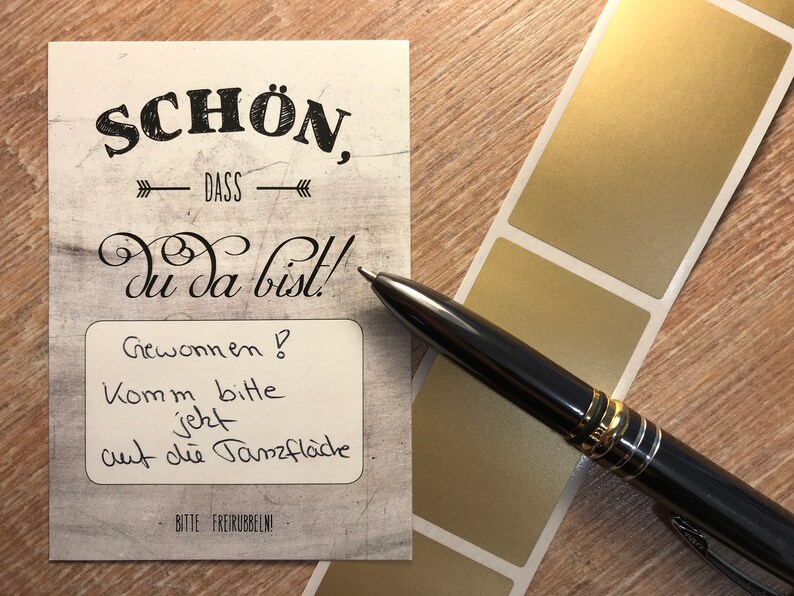 SCHÖN,
DASS
du da bist!
Gewonnen!
Komm bitte
jetzt
auf die Tanzfläche
- BITTE FREIRUBBELN! -